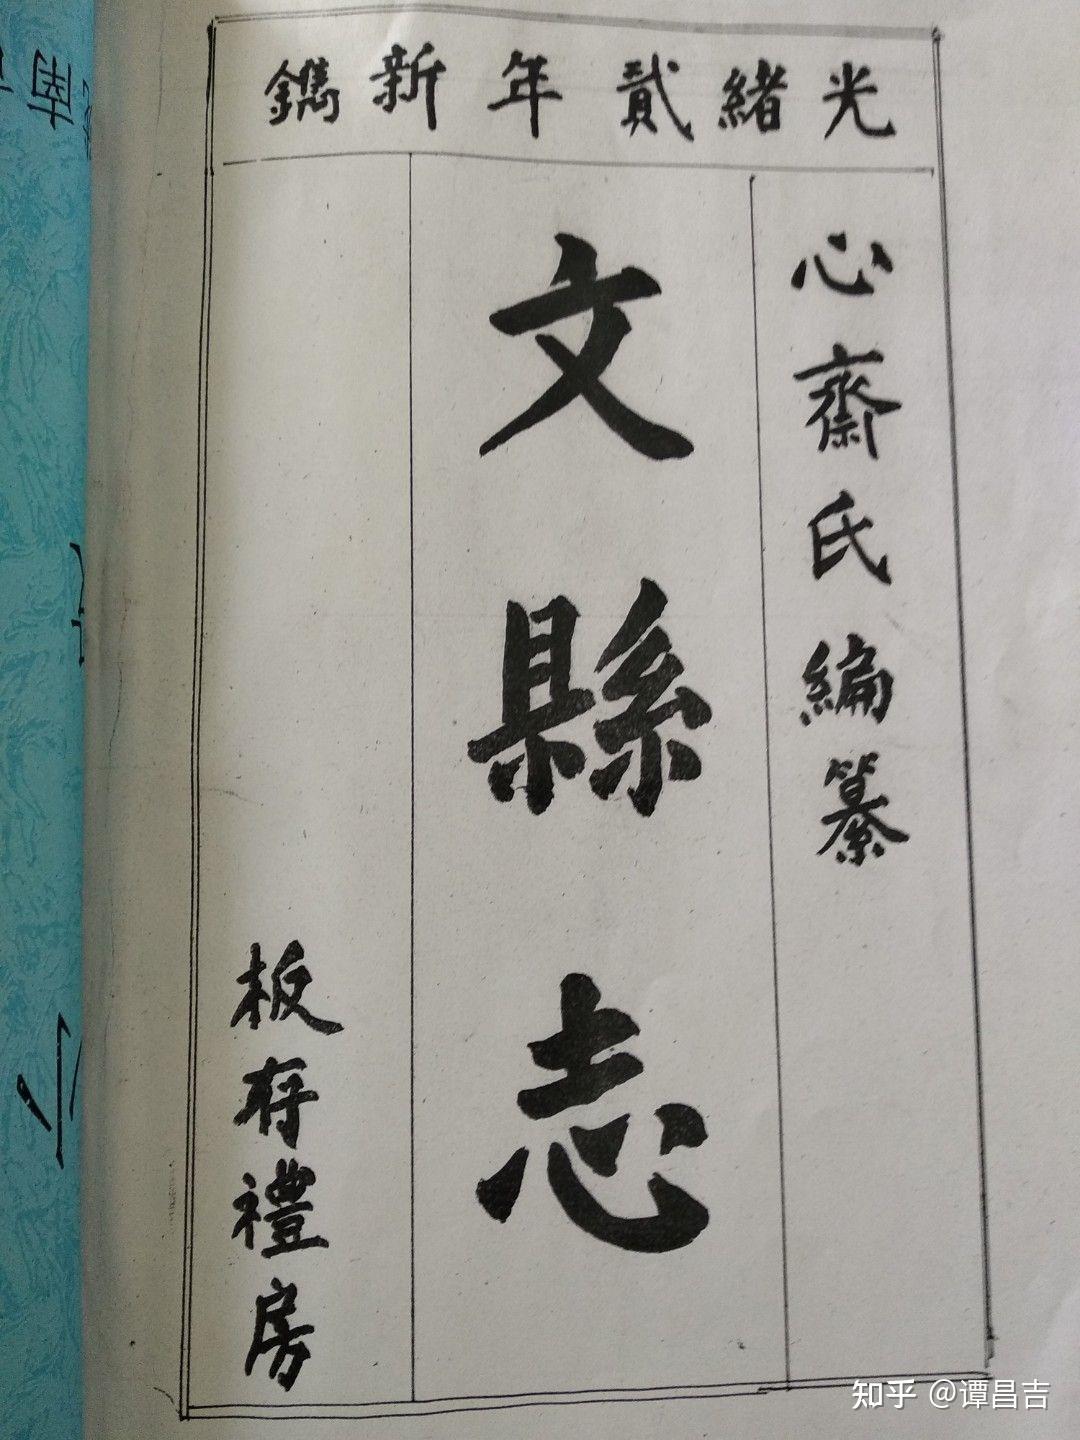 光緒貳年新鐫
心齋氏編纂
文縣志
板存禮房
知乎 @谭昌吉